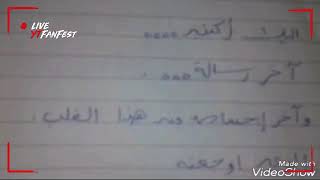 LIVE
YTFANFEST
اليك أكتب....
آخر رسالة...
وآخر إحساس من هذا القلب
اوجعته
Made with
VideoShow